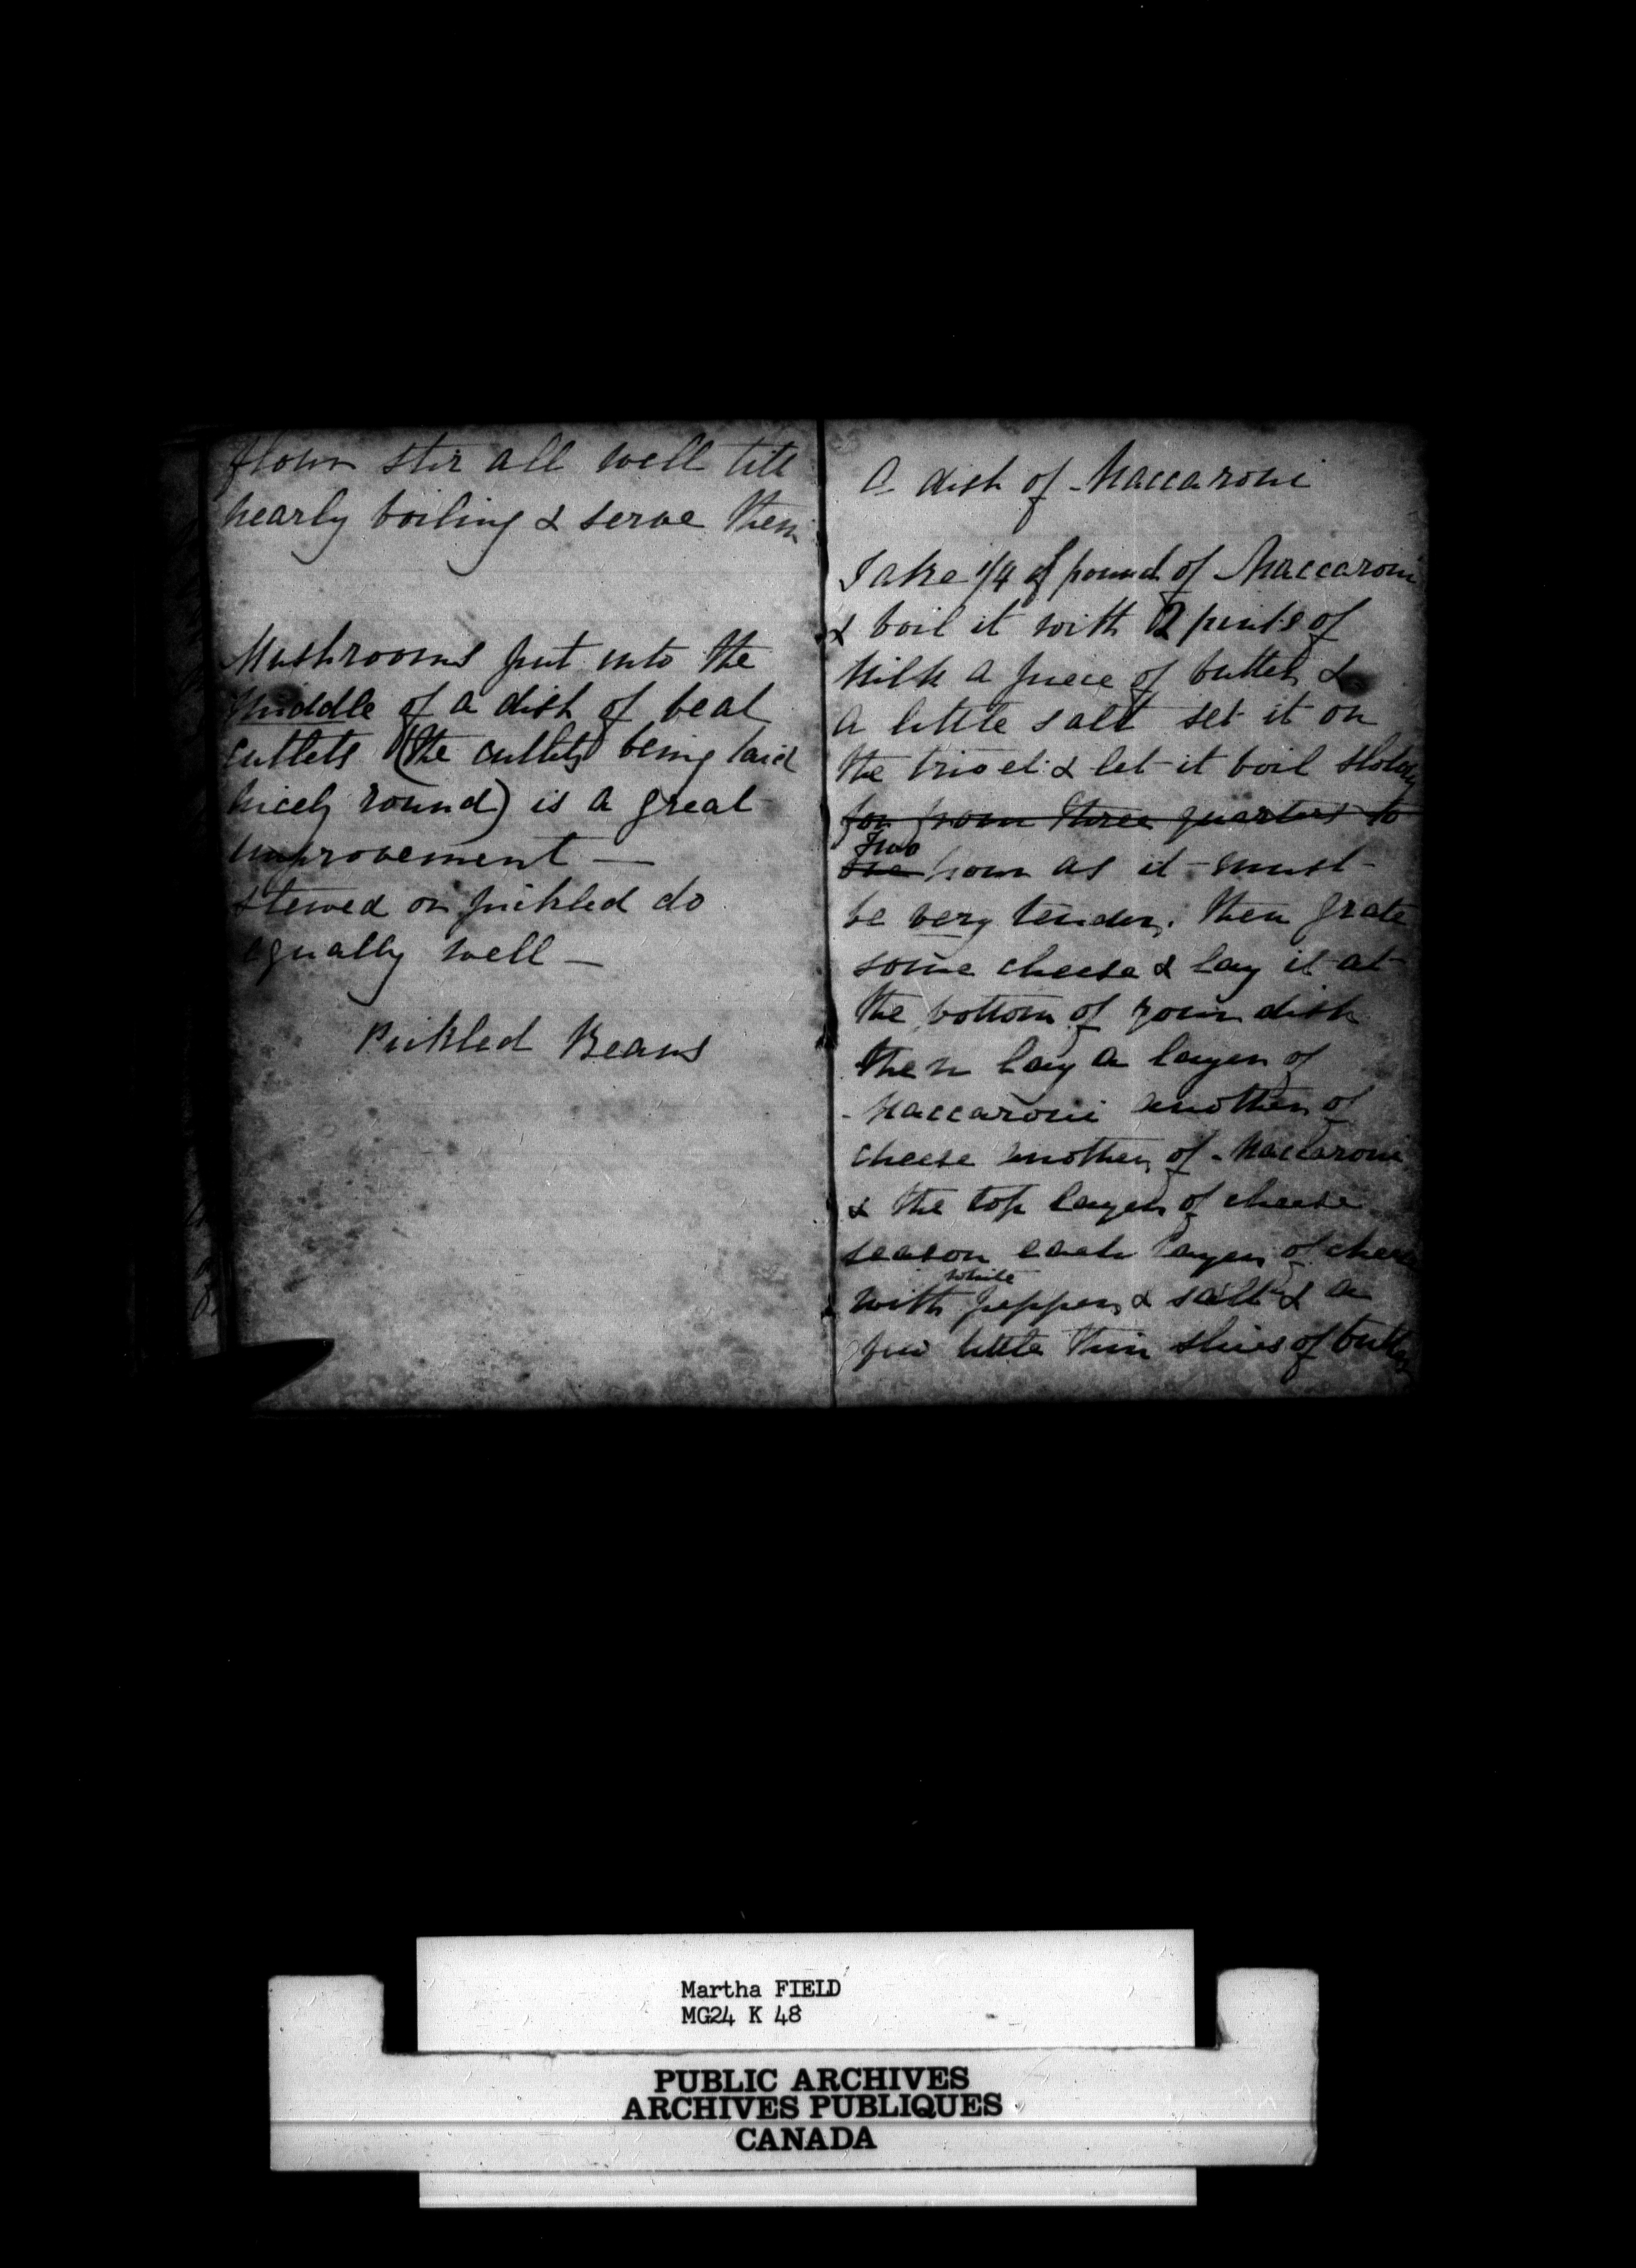 flour stir all well till
nearly boiling & serve them
Mushrooms put into the
middle of a dish of veal
cutlets (the cutlets being laid
nicely round) is a great
improvement —
stewed or pickled do
equally well —
Pickled Beans
A dish of Maccaroni
Take 1/4 of pound of Maccaroni
& boil it with 2 pints of
Milk a piece of butter &
a little salt set it on
the trivet & let it boil slowly
for from three quarters to
Two
one hour as it must
be very tender. Then grate
some cheese & lay it at
the bottom of your dish
then lay a layer of
Maccaroni another of
cheese another of Maccaroni
& the top layer of cheese
season each layer of cheese
white
with pepper & salt & a
few little thin slices of butter
Martha FIELD
MG24 K 48
PUBLIC ARCHIVES
ARCHIVES PUBLIQUES
CANADA